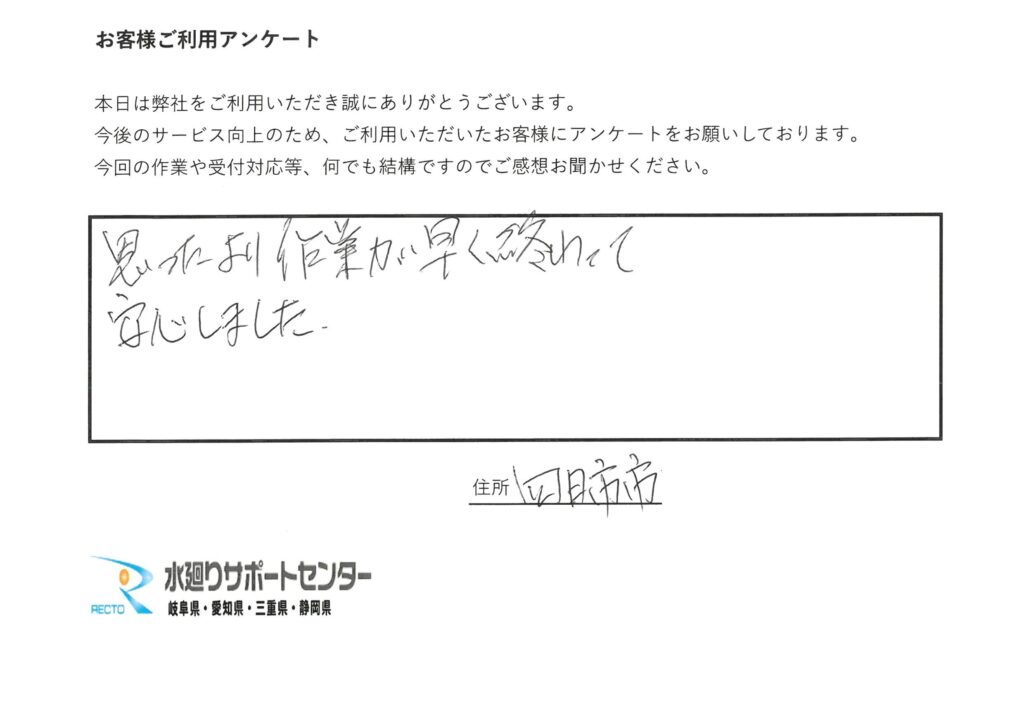 お客様ご利用アンケート
本日は弊社をご利用いただき誠にありがとうございます。
今後のサービス向上のため、ご利用いただいたお客様にアンケートをお願いしております。
今回の作業や受付対応等、何でも結構ですのでご感想お聞かせください。
思ったより作業が早く終わって
安心しました.
住所 四日市市
RECTO
水廻りサポートセンター
岐阜県・愛知県・三重県・静岡県